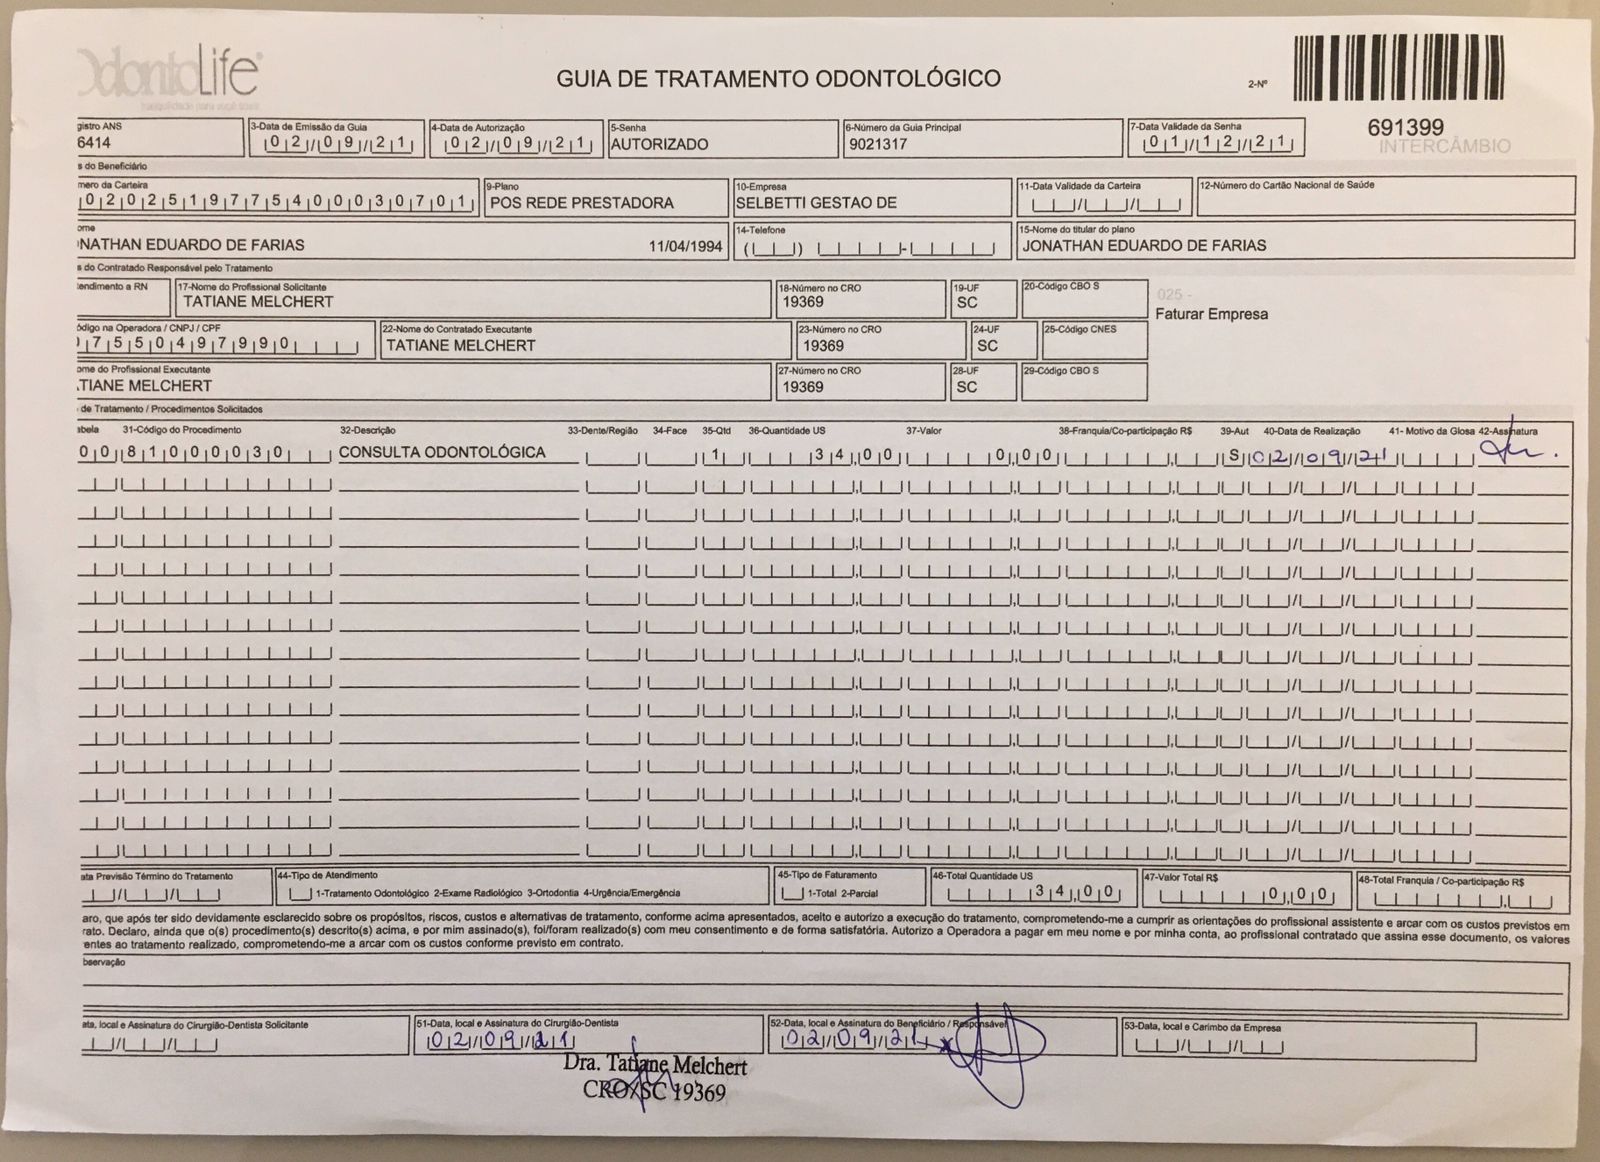 OdontoLife
tranquilidade para você sorrir
GUIA DE TRATAMENTO ODONTOLÓGICO
2-Nº
691399
INTERCÂMBIO
gistro ANS 3-Data de Emissão da Guia 4-Data de Autorização 5-Senha 6-Número da Guia Principal 7-Data Validade da Senha
6414 02/09/21 02/09/21 AUTORIZADO 9021317 01/12/21
s do Beneficiário
mero da Carteira 9-Plano 10-Empresa 11-Data Validade da Carteira 12-Número do Cartão Nacional de Saúde
0202519775400030701 POS REDE PRESTADORA SELBETTI GESTAO DE
ome 14-Telefone 15-Nome do titular do plano
NATHAN EDUARDO DE FARIAS 11/04/1994 JONATHAN EDUARDO DE FARIAS
s do Contratado Responsável pelo Tratamento
tendimento a RN 17-Nome do Profissional Solicitante 18-Número no CRO 19-UF 20-Código CBO S
TATIANE MELCHERT 19369 SC
025 -
Faturar Empresa
ódigo na Operadora / CNPJ / CPF 22-Nome do Contratado Executante 23-Número no CRO 24-UF 25-Código CNES
07550497990 TATIANE MELCHERT 19369 SC
ome do Profissional Executante 27-Número no CRO 28-UF 29-Código CBO S
TIANE MELCHERT 19369 SC
de Tratamento / Procedimentos Solicitados
abela 31-Código do Procedimento 32-Descrição 33-Dente/Região 34-Face 35-Qtd 36-Quantidade US 37-Valor 38-Franquia/Co-participação R$ 39-Aut 40-Data de Realização 41- Motivo da Glosa 42-Assinatura
00 81000030 CONSULTA ODONTOLÓGICA 1 34,00 0,00 S 02/09/21
ata Previsão Término do Tratamento 44-Tipo de Atendimento 45-Tipo de Faturamento 46-Total Quantidade US 47-Valor Total R$ 48-Total Franquia / Co-participação R$
1-Tratamento Odontológico 2-Exame Radiológico 3-Ortodontia 4-Urgência/Emergência 1-Total 2-Parcial 34,00 0,00
aro, que após ter sido devidamente esclarecido sobre os propósitos, riscos, custos e alternativas de tratamento, conforme acima apresentados, aceito e autorizo a execução do tratamento, comprometendo-me a cumprir as orientações do profissional assistente e arcar com os custos previstos em
rato. Declaro, ainda que o(s) procedimento(s) descrito(s) acima, e por mim assinado(s), foi/foram realizado(s) com meu consentimento e de forma satisfatória. Autorizo a Operadora a pagar em meu nome e por minha conta, ao profissional contratado que assina esse documento, os valores
entes ao tratamento realizado, comprometendo-me a arcar com os custos conforme previsto em contrato.
bservação
ata, local e Assinatura do Cirurgião-Dentista Solicitante 51-Data, local e Assinatura do Cirurgião-Dentista 52-Data, local e Assinatura do Beneficiário / Responsável 53-Data, local e Carimbo da Empresa
02/09/21 02/09/21
Dra. Tatiane Melchert
CRO/SC 19369